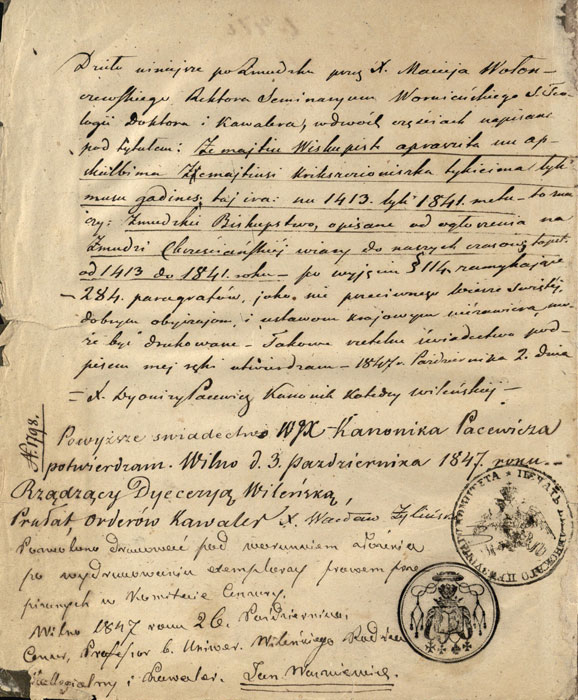 Dzieło niniejsze po Żmudzku przez X. Macieja Wołon-
czewskiego Rektora Seminaryum Worniańskiego S. Teo-
logii Doktora i Kawalera, w dwóch częściach napisane
pod tytułem: Żemajtiu Wiskupiste apraszita nu ap-
skielbima Żemajtiusi krikszczioniszka tykieima tyk
musu gadines, taj ira: nu 1413. lyki 1841. metu – to zna-
czy: Żmudzkie Biskupstwo, opisane od ogłoszenia na
Żmudzi Chrześciańskiej wiary do naszych czasów, to jest
od 1413 do 1841. roku – po wyjęciu § 114. zamykające
– 284. paragrafów, jako nie przeciwnego wierze świętej,
dobrym obyczajom, i ustawom krajowym niezawiera, mo-
że być drukowane – Takowe rzetelne świadectwo pod-
pisem mej ręki utwierdzam – 1847 r. Października 2. dnia
= X. Dyonizy Pacewicz Kanonik Katedry wileńskiej –
N. 1798.
Powyższe swiadectwo WJX Kanonika Pacewicza
potwierdzam. Wilno d. 3. Października 1847. roku. –
Rządzący Dyecezyą Wileńską,
Prałat, Orderów Kawaler X. Wacław Żyliński
Pozwolono drukować pod warunkiem złożenia
po wydrukowaniu exemplarzy prawem prze
pisanych w Komitecie Cenzury.
Wilno 1847 roku 26. Października,
Cenzor, Professor b. Uniwer. Wileńskiego Radzca
Kollegialny i Kawaler. Jan Waszkiewicz.